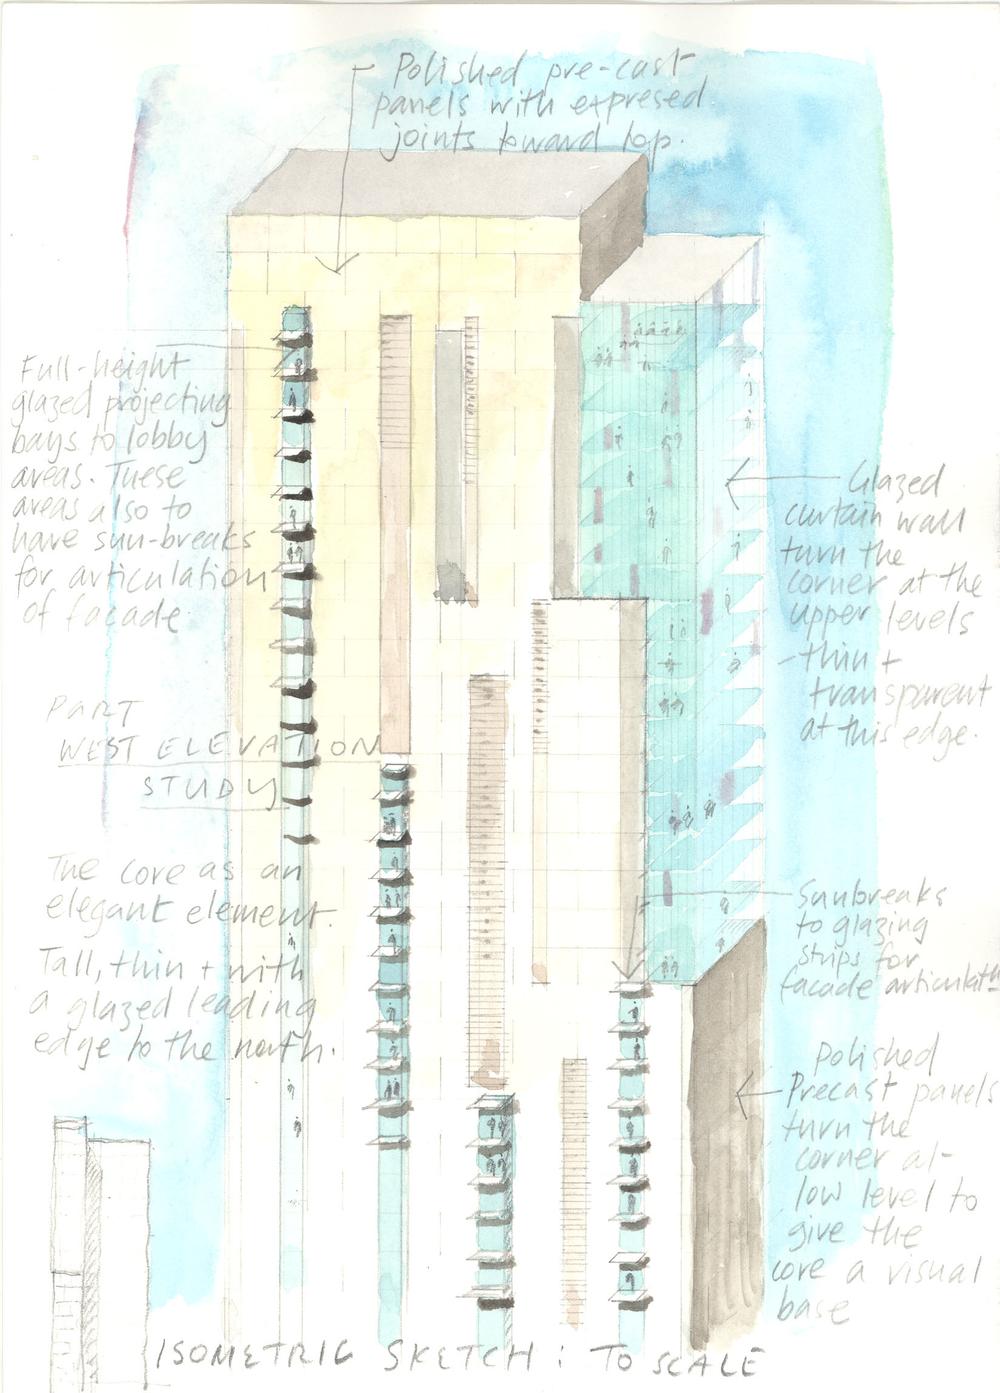 Polished pre-cast
panels with expresed
joints toward top.
Full-height
glazed projecting
bays to lobby
areas. These
areas also to
have sun-breaks
for articulation
of facade
Glazed
curtain wall
turn the
corner at the
upper levels
- thin +
transparent
at this edge.
PART
WEST ELEVATION
STUDY
The core as an
elegant element.
Tall, thin + with
a glazed leading
edge to the north.
Sunbreaks
to glazing
strips for
facade articulatn
Polished
Precast panels
turn the
corner at
low level to
give the
core a visual
base
ISOMETRIC SKETCH : TO SCALE